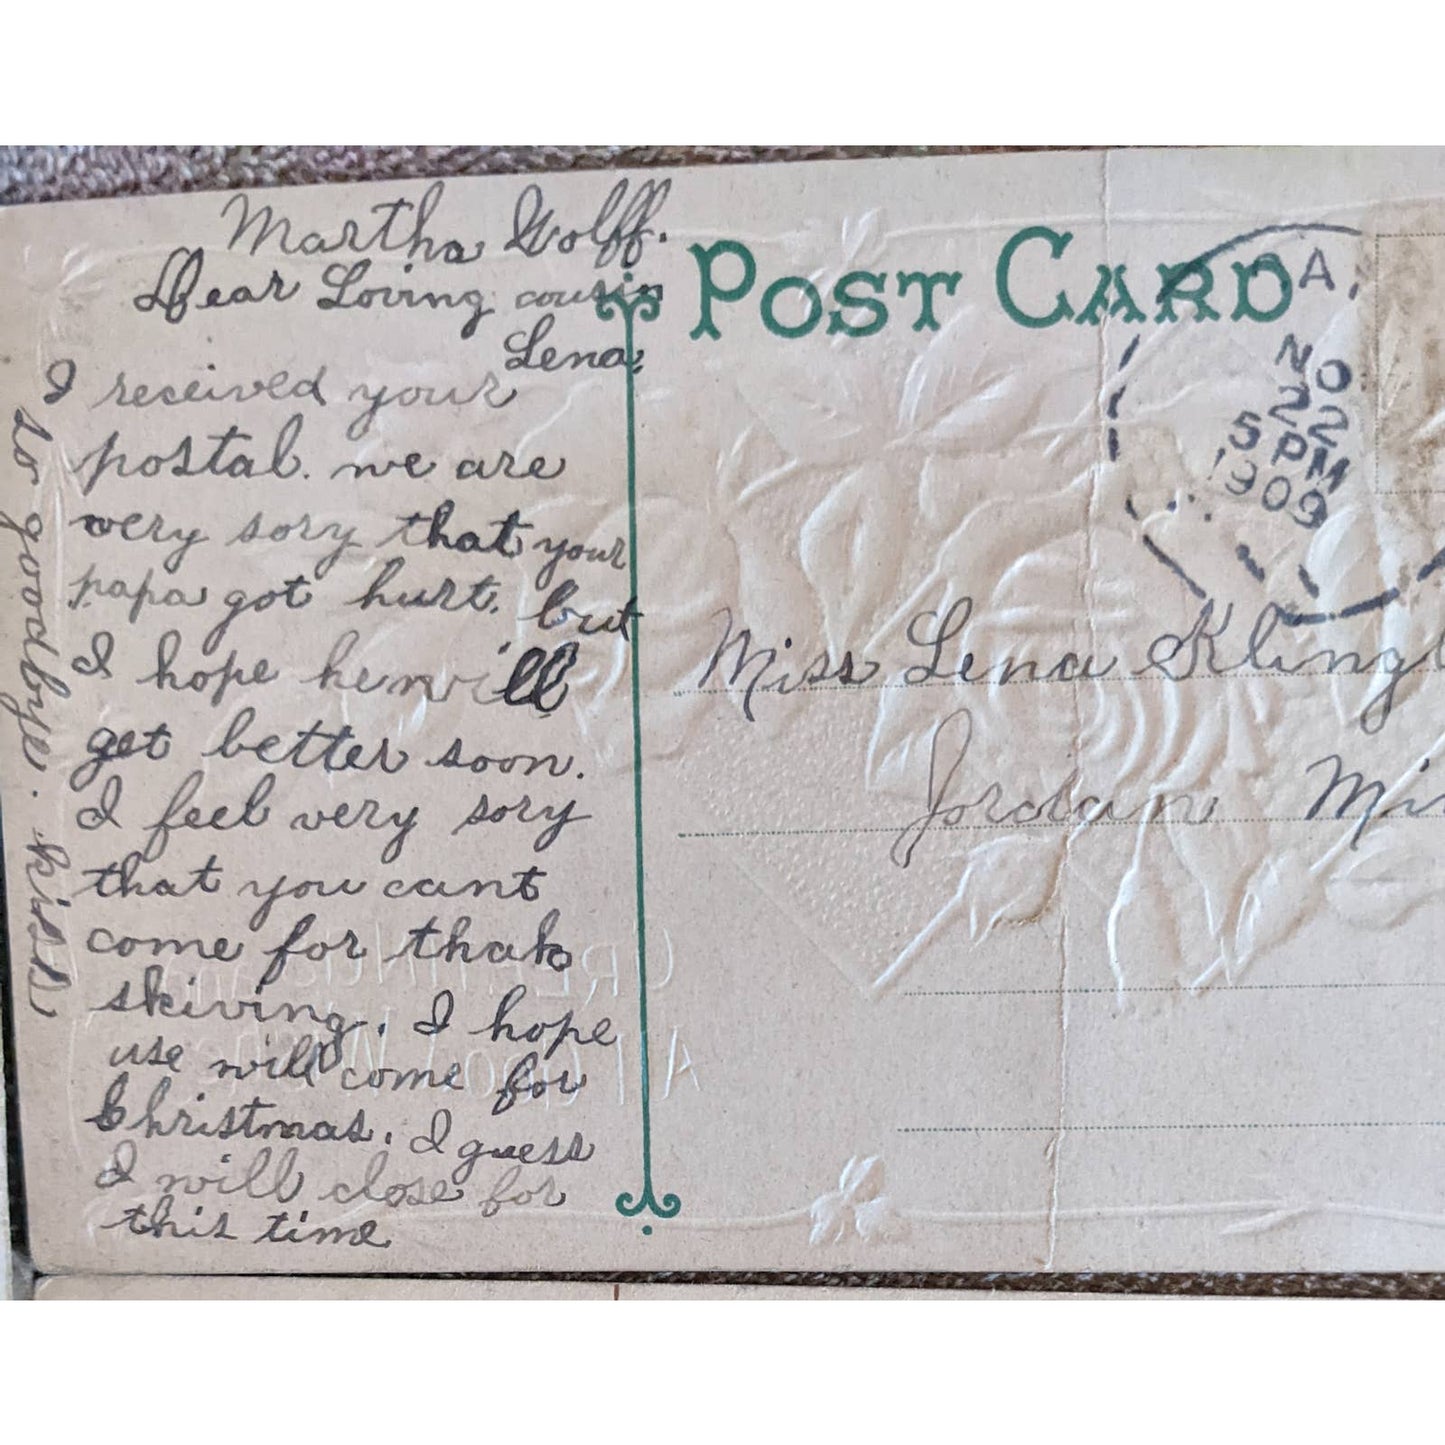 Martha Wolff.
Dear Loving cousin
Lena,
I received your
postal. we are
very sory that your
papa got hurt. but
I hope he will
get better soon.
I feel very sory
that you cant
come for thak
skiving. I hope
use will come for
Christmas. I guess
I will close for
this time
so goodbye. kiss
POST CARD
A.
NO
22
5 PM
1909
Miss Lena
Jordan